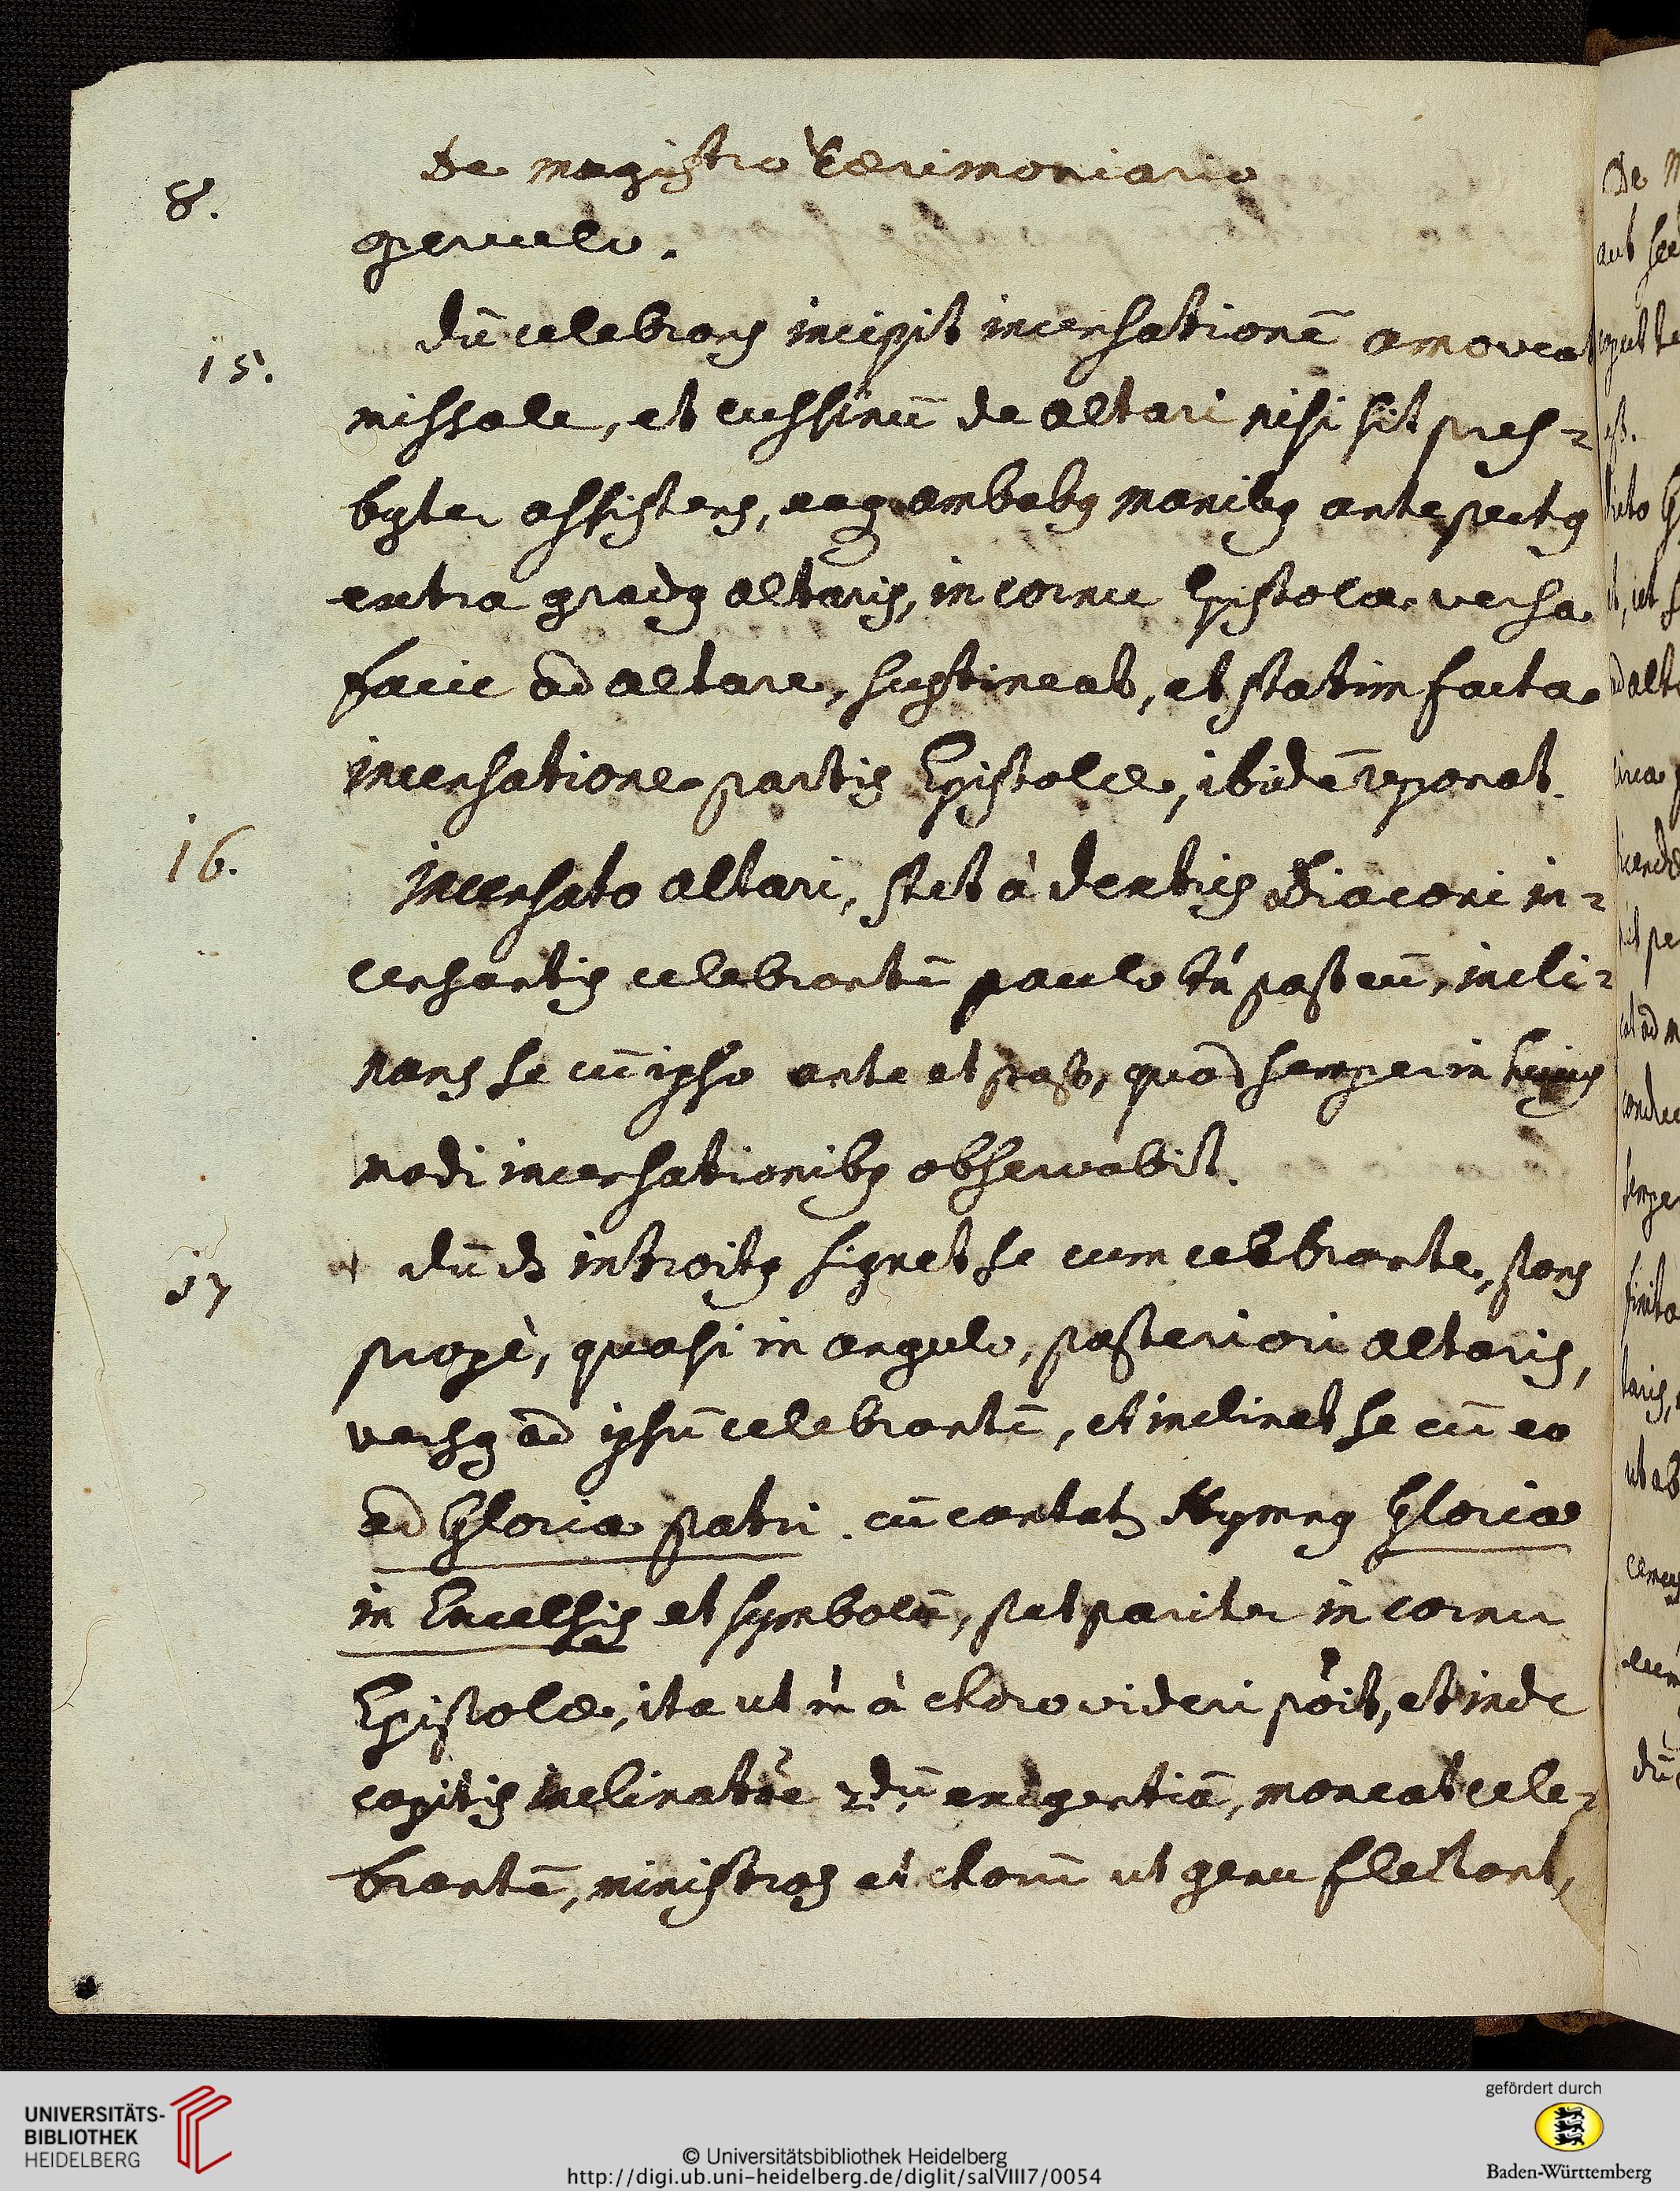 De magistro Cærimoniario
8.
genuculo.
15.
dū celebrans incipit incensationē amoveat
missale, et cussinū de altari nisi sit pres-
byter assistens, eaq ambabꝰ manibꝰ ante pectꝰ
extra gradꝰ altaris, in cornu Epistolæ versa
facie ad altare, sustineat, et statim facta
incensatione partis Epistolæ, ibidē reponat.
16.
Incensato altari, stet à dextris Diaconi in-
censantis celebrantē paulo tn̄ post eū, incli-
nans se cū ipso ante et post, quod semper in huius
modi incensationibꝰ observabit.
17
dū introitꝰ signet se cum celebrante, stans
propè, quasi in angulo, posteriori altaris,
versꝰ ad ipsū celebrantē, et inclinet se cū eo
ad Gloria patri. cū cantatr Hymnꝰ Gloria
in Excelsis et symbolū, stet pariter in cornu
Epistolæ, ita ut à choro videri pōit, et inde
capitis inclinatōe exigentiā, moneat cele-
brantē, ministros et chorū ut genu flectant,
De M
UNIVERSITÄTS-
BIBLIOTHEK
HEIDELBERG
© Universitätsbibliothek Heidelberg
http://digi.ub.uni-heidelberg.de/diglit/salVIII7/0054
gefördert durch
Baden-Württemberg